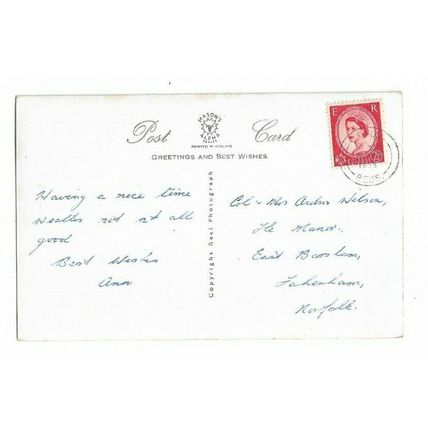 MASON'S
ALPHA
SERIES
PRINTED IN ENGLAND
Post Card
GREETINGS AND BEST WISHES
E R
2½
Having a nice time
Weather not at all
good
Best Wishes
Ann
Copyright Real Photograph
Col & Mrs Arthur Wilson,
The Manor,
East Barsham,
Fakenham,
Norfolk.